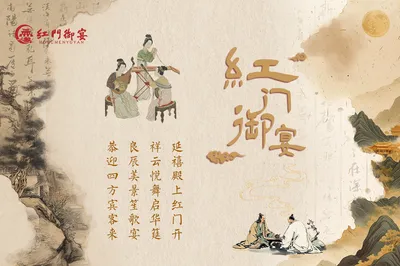 紅門御宴
紅门御宴
延禧殿上红门开
祥云悦舞启华筵
良辰美景笙歌宴
恭迎四方宾客来